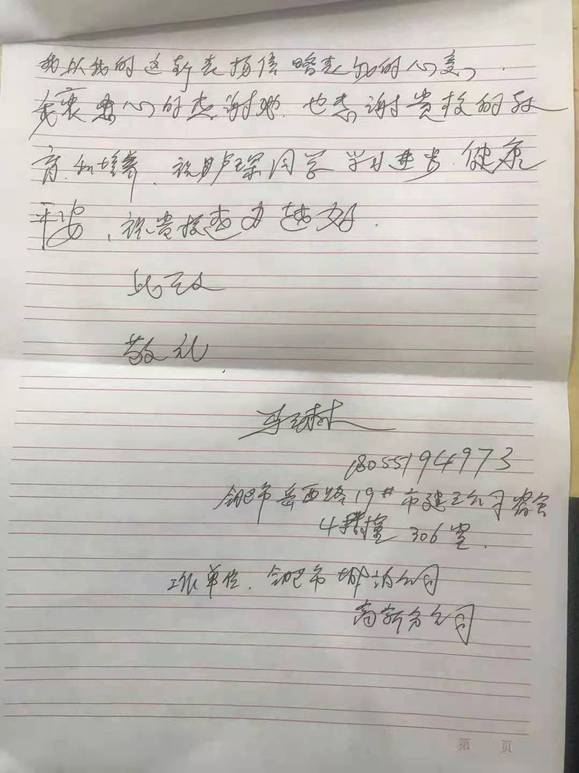 我以我的这封表扬信略表我的心意,
我衷心的感谢她.也感谢贵校的教
育和培养.祝卢同学学习进步.健康
平安,祝贵校越办越好.
此致
敬礼
18055194973
合肥市岳西路19#市建公司宿舍
4 306室.
工作单位.合肥市公司
高新分公司
第 页